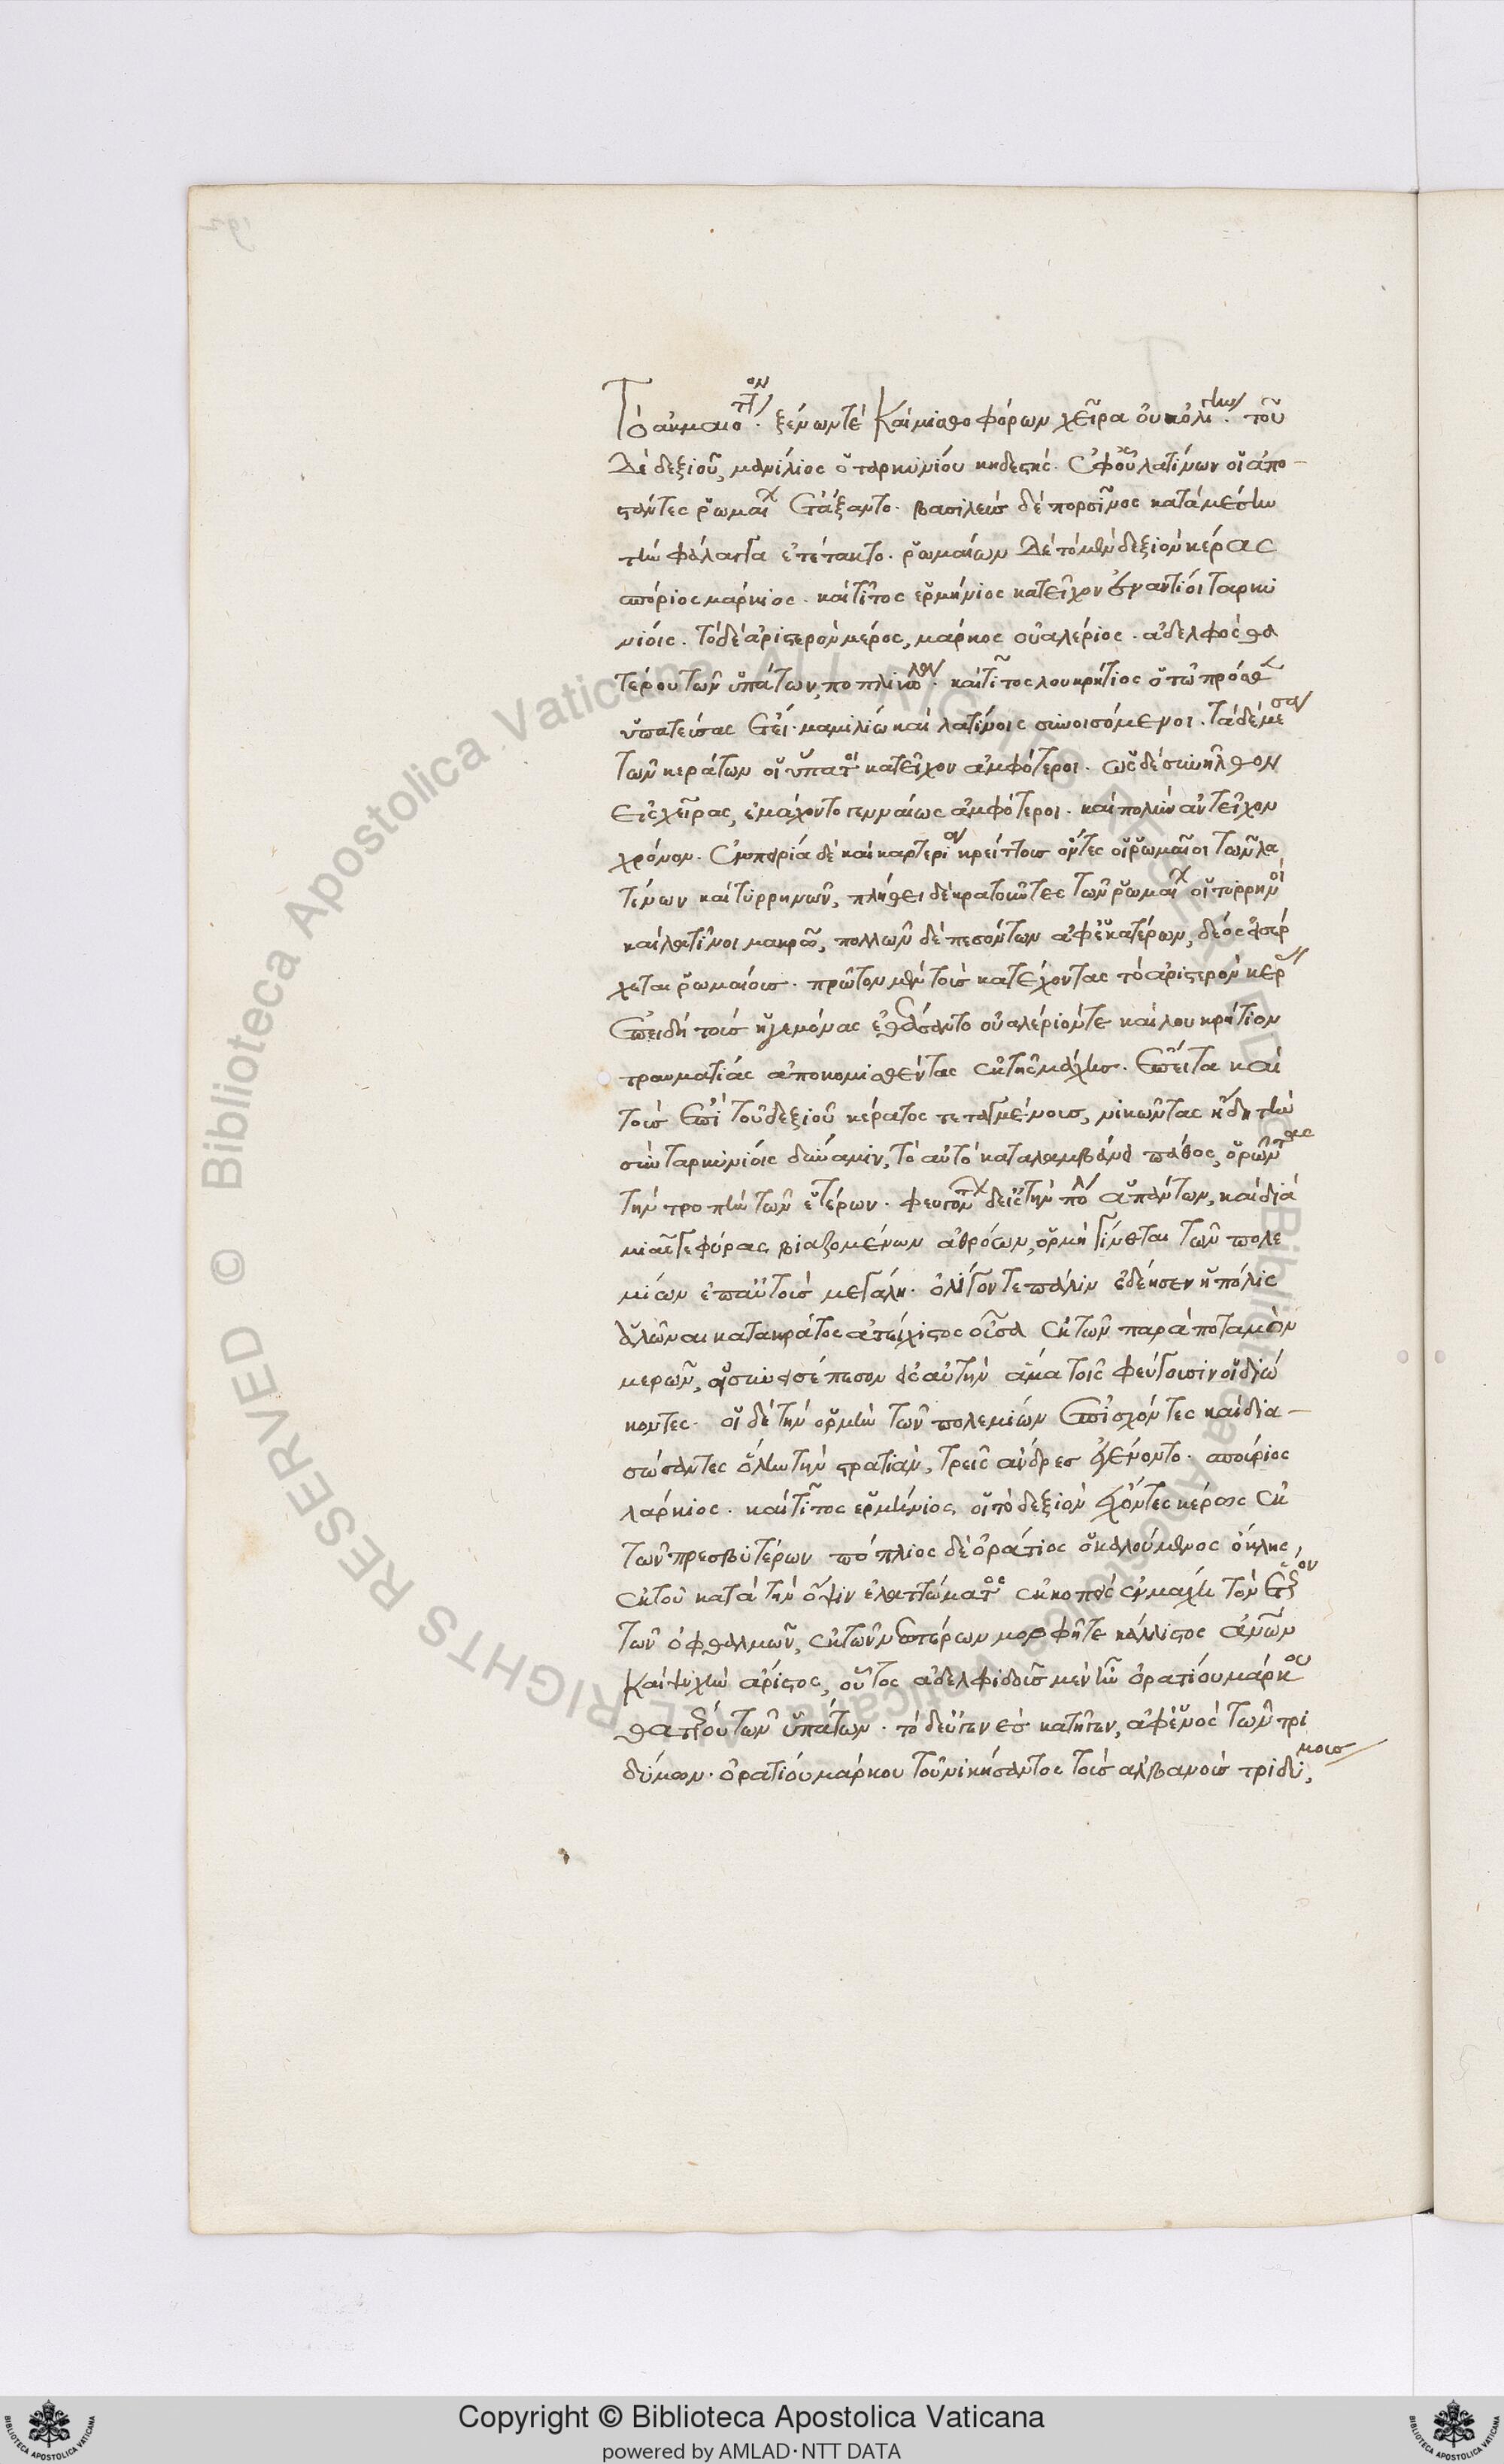 Τὸ ἀκμαιότατον· ξένων τὲ καὶ μισθοφόρων χεῖρα οὐκ ὀλίγην· τοῦ
δὲ δεξιοῦ, μανίλιος ὁ ταρκυνίου κηδεστής· ἐφ' οὗ λατίνων οἱ ἀπο-
στάντες ῥωμαίων ἐτάξαντο· βασιλεὺς δὲ πορσῖνος κατὰ μέσην
τὴν φάλαγγα ἐτέτακτο· ῥωμαίων δὲ τὸ μὲν δεξιὸν κέρας
σπόριος μάρκιος· καὶ τῖτος ἑρμήνιος κατεῖχον ἐναντίοι ταρκυ
νίοις· τὸ δὲ ἀριστερὸν μέρος, μάρκος οὐαλέριος· ἀδελφὸς θα
τέρου τῶν ὑπάτων, ποπλικόλα· καὶ τῖτος λουκρήτιος ὁ τῷ πρόσθεν
ὑπατεύσας ἔτει· μαμιλίῳ καὶ λατίνοις συνοισόμενοι· τὰ δὲ μέσα
τῶν κεράτων οἱ ὕπατοι κατεῖχον ἀμφότεροι· ὡς δὲ συνῆλθον
εἰς χεῖρας, ἐμάχοντο γενναίως ἀμφότεροι· καὶ πολὺν ἀντεῖχον
χρόνον· ἐμπειρία δὲ καὶ καρτερία κρείττους ὄντες οἱ ῥωμαῖοι τῶν λα
τίνων καὶ τυρρηνῶν, πλήθει δὲ κρατοῦντες τῶν ῥωμαίων οἱ τυρρηνοὶ
καὶ λατῖνοι μακρῷ, πολλῶν δὲ πεσόντων ἀφ' ἑκατέρων, δέος εἰσέρ
χεται ῥωμαίους· πρῶτον μὲν τοὺς κατέχοντας τὸ ἀριστερὸν κέρας
ἐπειδὴ τοὺς ἡγεμόνας ἐθεάσαντο οὐαλέριόν τε καὶ λουκρήτιον
τραυματίας ἀποκομισθέντας ἐκ τῆς μάχης· ἔπειτα καὶ
τοὺς ἐπὶ τοῦ δεξιοῦ κέρατος τεταγμένους, νικῶντας ἤδη τὴν
σὺν ταρκυνίοις δύναμιν, τὸ αὐτὸ καταλαμβάνει πάθος, ὁρῶντας
τὴν τροπὴν τῶν ἑτέρων· φευγόντων δ' εἰς τὴν πόλιν ἁπάντων, καὶ διὰ
μιᾶς γεφύρας βιαζομένων ἀθρόων, ὁρμὴ γίνεται τῶν πολε
μίων ἐπ' αὐτοὺς μεγάλη· ὀλίγον τε πάλιν ἐδέησεν ἡ πόλις
ἁλῶναι κατακράτος ἀτείχιστος οὖσα ἐκ τῶν παρὰ ποταμὸν
μερῶν, εἰ συνεισέπεσον εἰς αὐτὴν ἅμα τοῖς φεύγουσιν οἱ διώ
κοντες· οἱ δὲ τὴν ὁρμὴν τῶν πολεμίων ἐπισχόντες καὶ δια-
σώσαντες ὅλην τὴν στρατιὰν, τρεῖς ἄνδρες ἐγένοντο· σπόριος
λάρκιος· καὶ τῖτος ἑρμήνιος, οἱ τὸ δεξιὸν ἔχοντες κέρας ἐκ
τῶν πρεσβυτέρων πόπλιος δὲ ὁράτιος ὁ καλούμενος ὁκλης,
ἐκ τοῦ κατὰ τὴν ὄψιν ἐλαττώματος ἐκκοπεὶς ἐν μάχῃ τὸν ἕτερον
τῶν ὀφθαλμῶν, ἐκ τῶν νεωτέρων μορφήν τε κάλλιστος ἀνθρώπων
καὶ ψυχὴν ἄριστος, οὗτος ἀδελφιδοῦς μὲν ἦν ὁρατίου μάρκου
θατέρου τῶν ὑπάτων· τὸ δὲ γένος κατῆγεν, ἀφ' ἑνὸς τῶν τρι
δύμων· ὁρατίου μάρκου τοῦ νικήσαντος τοὺς ἀλβανοὺς τριδύμους
Copyright © Biblioteca Apostolica Vaticana
powered by AMLAD·NTT DATA